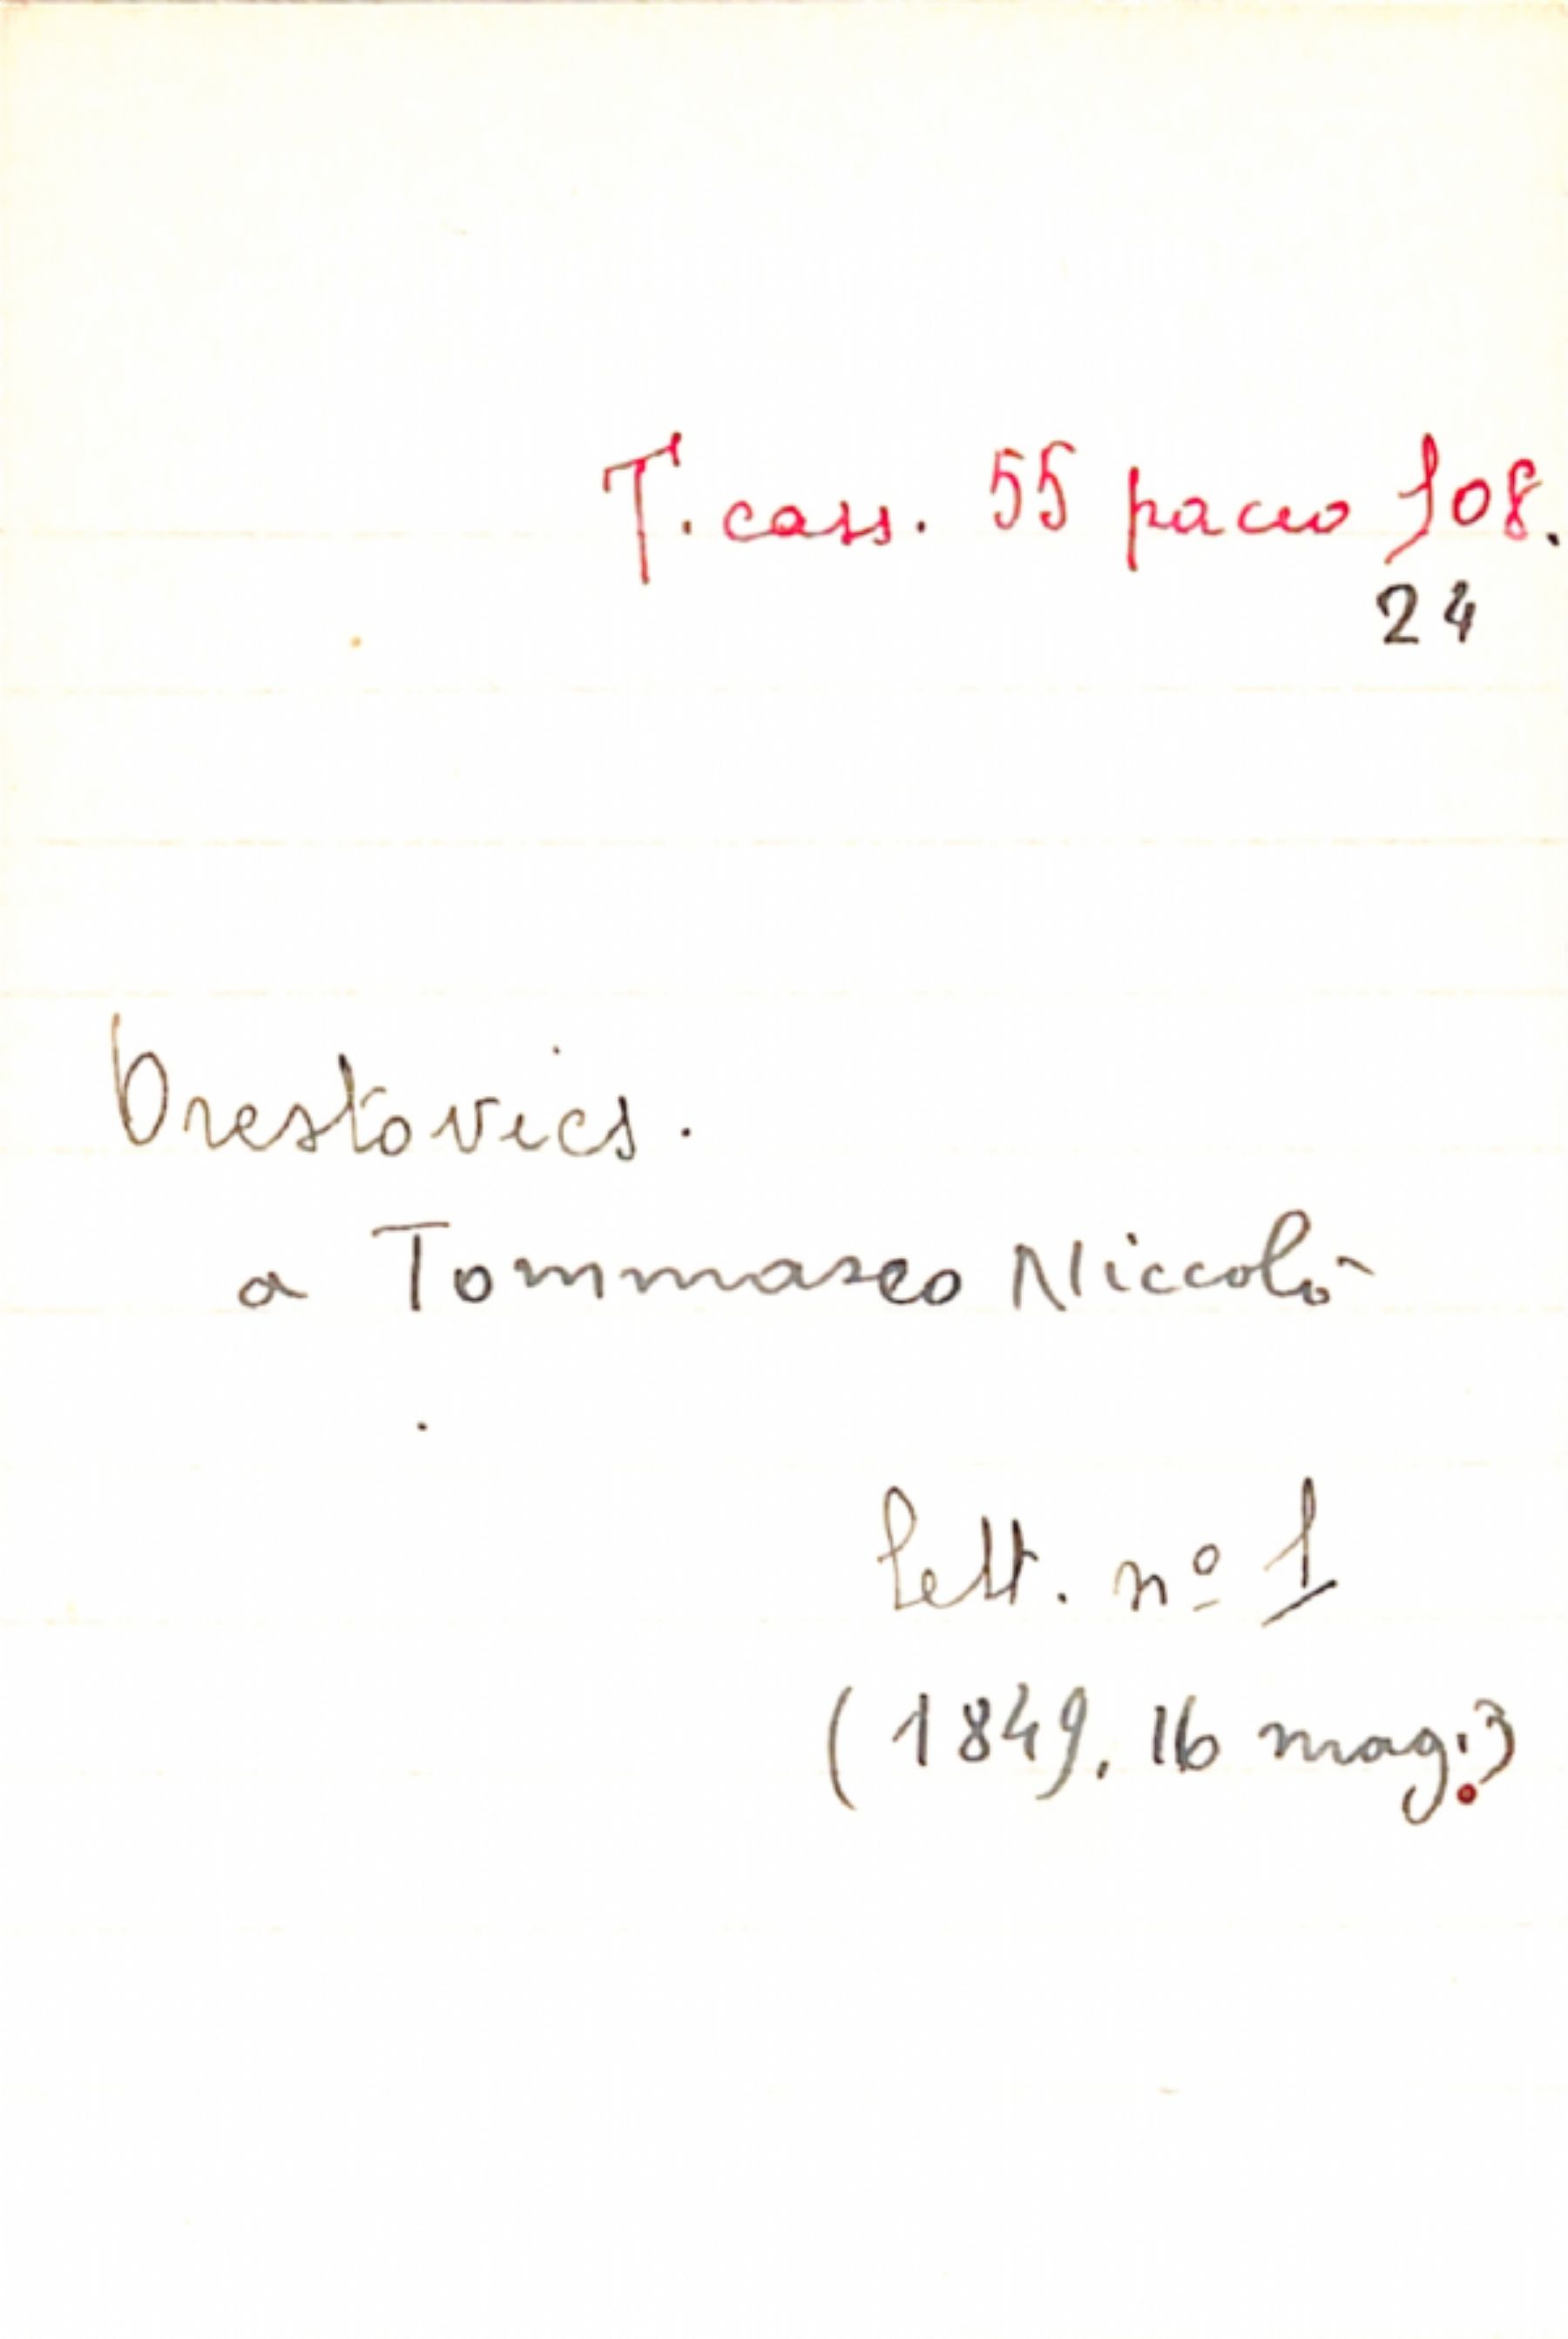 T. cass. 55 pacco 108.
24
Orestovics.
a Tommaseo Niccolò
lett. nº 1
(1849, 16 mag.)